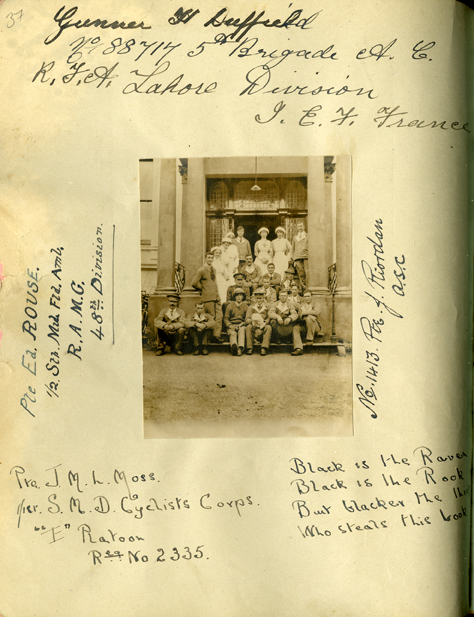 37
Gunner H Duffield
No 88717 5th Brigade A. C.
R. F. A. Lahore Division
I. E. F. France
Pte Ed. ROUSE.
1/2 Sth. Mid. Fld. Amb.
R.A.M.C.
48th Division.
No. 1413. Pte. J. Riordan
A.S.C
Pte. J M. L. Moss.
1/1st. S. M. D. Cyclists Corps.
"E" Platoon
Regt No 2335.
Black is the Raven
Black is the Rook
But blacker the
Who steals this book